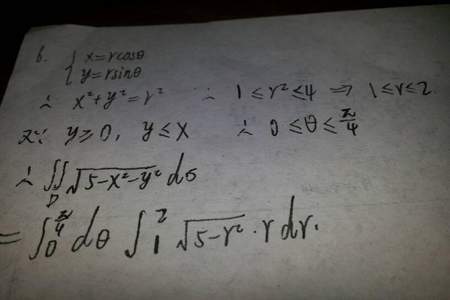 6. { x=rcosθ
{ y=rsinθ
∴ x²+y²=r² ∴ 1≤r²≤4 ⇒ 1≤r≤2
又∵ y≥0, y≤x ∴ 0≤θ≤π/4
∴ ∬_D √(5-x²-y²) dσ
= ∫_0^{π/4} dθ ∫_1^2 √(5-r²)·r dr.